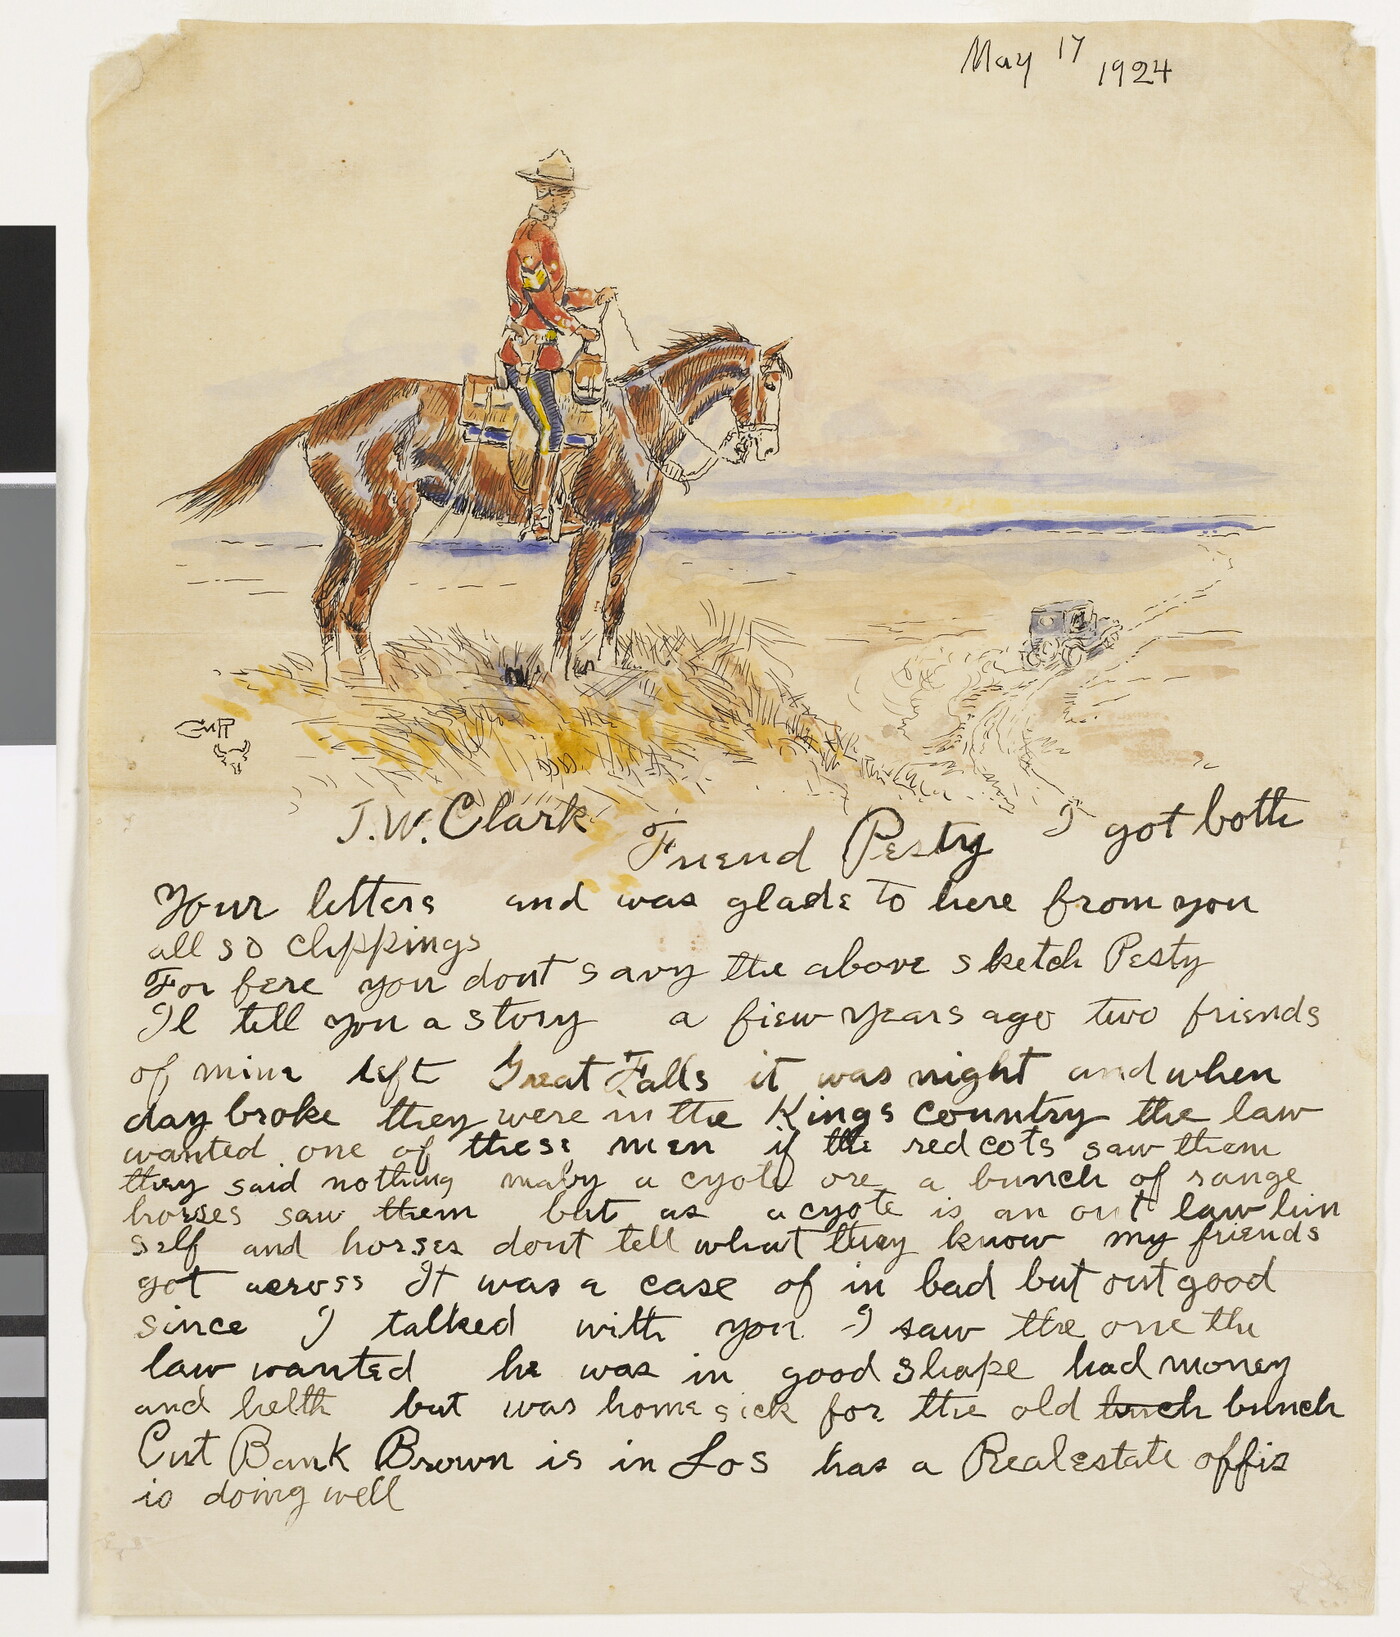 May 17 1924
CMR
J.W. Clark
Friend Pesty I got both
Your letters and was glade to here from you
all so clippings
For fere you dont savy the above sketch Pesty
Il tell you a story a fiew years ago two friends
of mine left Great Falls it was night and when
day broke they were in the Kings country the law
wanted one of these men if the red cots saw them
they said nothing maby a cyote ore a bunch of range
horses saw them but as a cyote is an out law him
self and horses dont tell what they know my friends
got across It was a case of in bad but out good
since I talked with you I saw the one the
law wanted he was in good shape had money
and helth but was home sick for the old bunch
Cut Bank Brown is in Los has a Realestate offis
is doing well